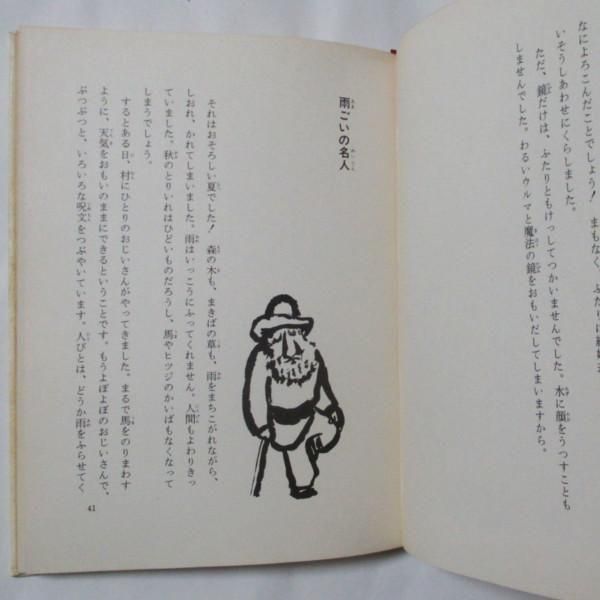 なによろこんだことでしょう！　まもなく、ふたりは
いそうしあわせにくらしました。
ただ、鏡だけは、ふたりともけっしてつかいませんでした。水に顔をうつすことも
しませんでした。わるいウルマと魔法の鏡をおもいだしてしまいますから。
雨ごいの名人
それはおそろしい夏でした！　森の木も、まきばの草も、雨をまちこがれながら、
しおれ、かれてしまいました。雨はいっこうにふってくれません。人間もよわりきっ
ていました。秋のとりいれはひどいものだろうし、馬やヒツジのかいばもなくなって
しまうでしょう。
するとある日、村にひとりのおじいさんがやってきました。まるで馬をのりまわす
ように、天気をおもいのままにできるということです。もうよぼよぼのおじいさんで、
ぶつぶつと、いろいろな呪文をつぶやいています。人びとは、どうか雨をふらせてく
41